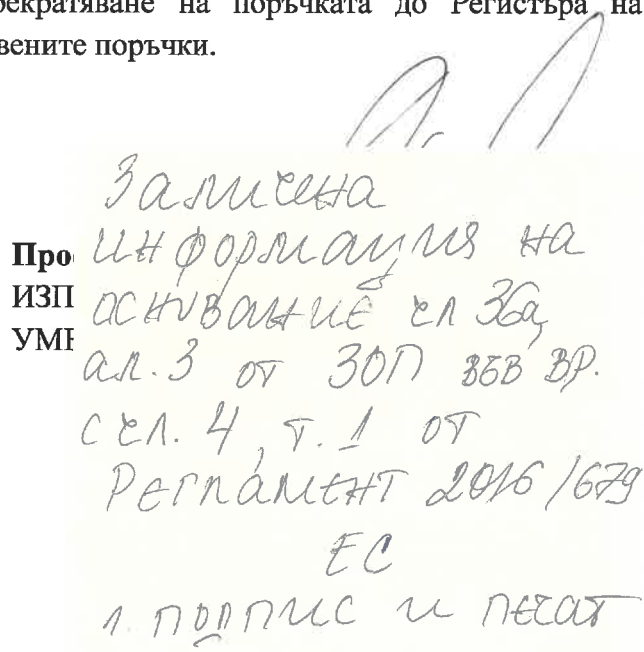 рекратяване на поръчката до Регистъра на
вените поръчки.
Заличена
Про информация на
ИЗП основание чл 36а,
УМБ ал. 3 от ЗОП във вр.
с чл. 4, т. 1 от
Регламент 2016/679
ЕС
1. подпис и печат